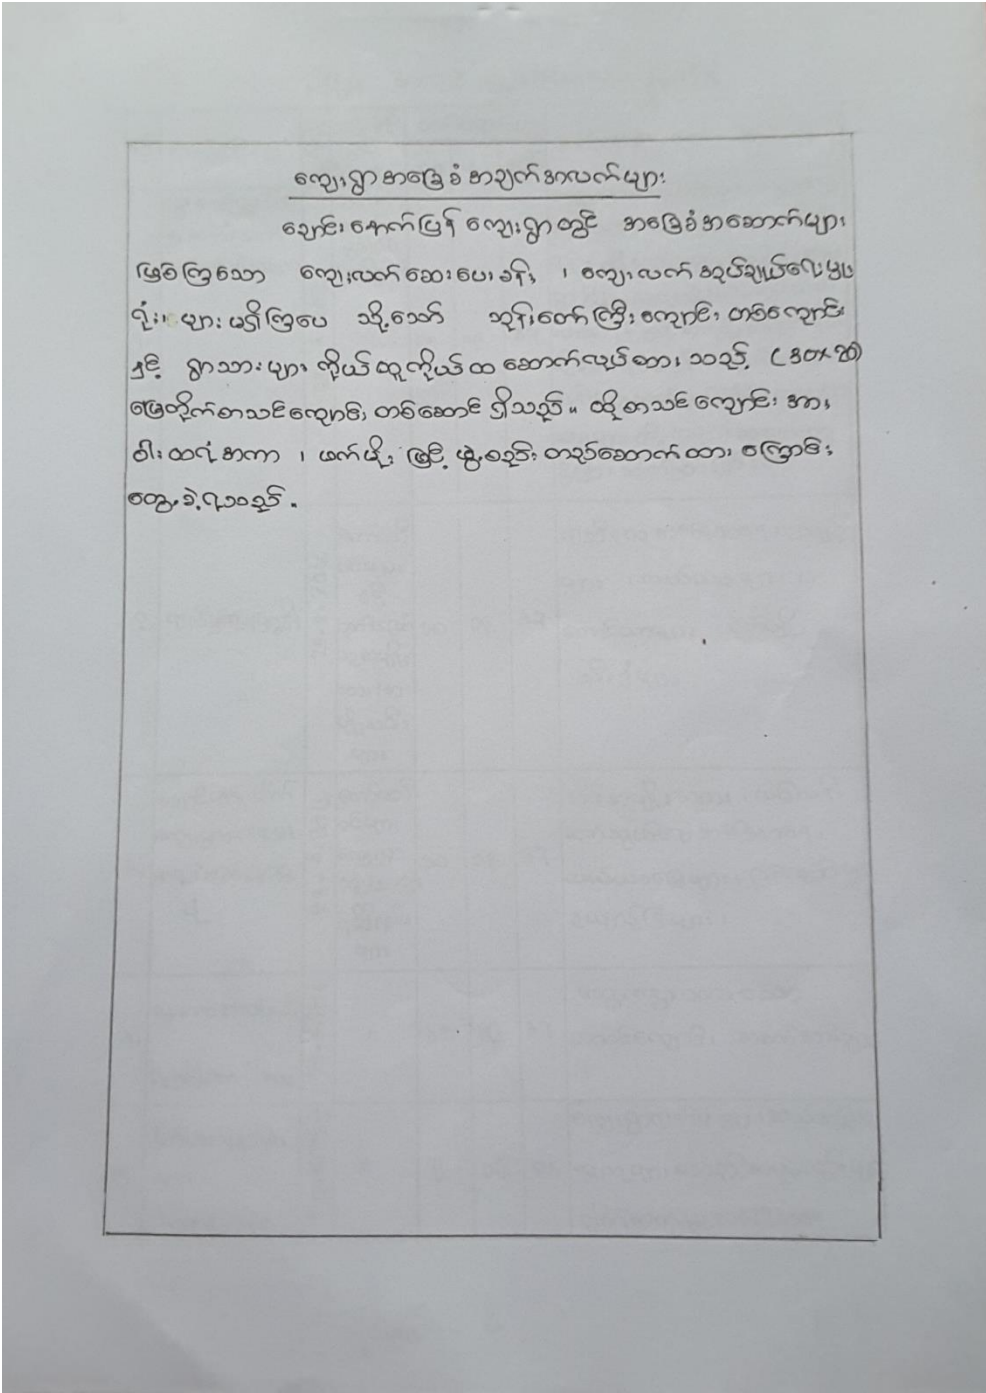 ကျေးရွာအခြေခံအချက်အလက်များ
ချောင်းနောက်ပြန် ကျေးရွာတွင် အခြေခံအဆောက်အများ
ဖြစ်ကြသော ကျေးလက်ဆေးပေးခန်း ၊ ကျေးလက်အုပ်ချုပ်ရေးမှူး
ရုံး၊ များ မရှိကြပေ သို့သော် ဘုန်းတော်ကြီး ကျောင်း တစ်ကျောင်း
နှင့် ရွာသားများ ကိုယ်ထူကိုယ်ထ ဆောက်လုပ်ထား သည့် (30×20)
မြေတိုက်စာသင်ကျောင်း တစ်ဆောင် ရှိသည်။ ထိုစာသင်ကျောင်း အား
ဝါးထရံအကာ ၊ ဖက်မိုး ဖြင့် ဖွဲ့စည်း တည်ဆောက်ထား ကြောင်း
တွေ့ခဲ့ရသည်။